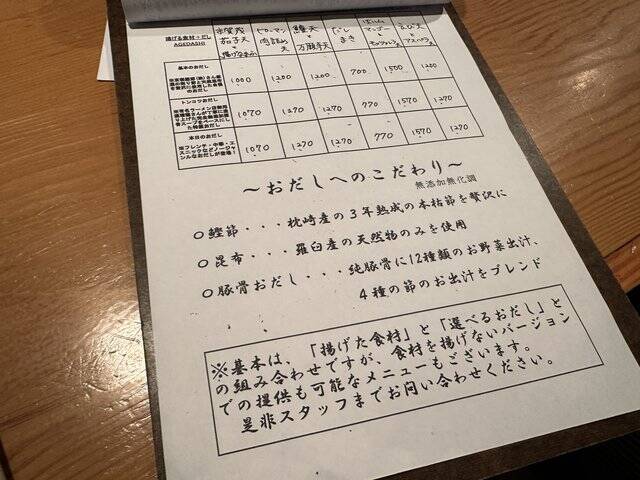 揚げる食材+だし
AGEDASHI
茄子天
ピーマン
肉詰め
天
鱧天
と
万願寺天
だし
まき
マンゴー
と
モッツァレラ天
えび天
と
アスパラ天
基本のおだし
1000
1200
1200
700
1500
1200
トンコツおだし
1070
1270
1270
770
1570
1270
本日のおだし
※フレンチ・中華・エ
スニックなどノージャ
ンルなおだしが登場！
1070
1270
1270
770
1570
1270
～おだしへのこだわり～
無添加無化調
○ 鰹節・・・枕崎産の３年熟成の本枯節を贅沢に
○ 昆布・・・羅臼産の天然物のみを使用
○ 豚骨おだし・・・純豚骨に12種類のお野菜出汁、
４種の節のお出汁をブレンド
※基本は、「揚げた食材」と「選べるおだし」と
の組み合わせですが、食材を揚げないバージョン
での提供も可能なメニューもございます。
是非スタッフまでお問い合わせください。